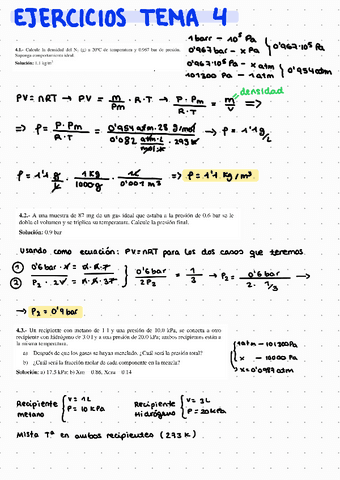 EJERCICIOS TEMA 4
4.1.- Calcule la densidad del N₂ (g) a 20ºC de temperatura y 0.967 bar de presión.
Suponga comportamiento ideal.
Solución: 1.1 kg/m³
1 bar - 10⁵ Pa
0'967 bar - x Pa } 0'967·10⁵ Pa
0'967·10⁵ Pa - x atm
101300 Pa - 1 atm } 0'954 atm
PV = nRT → PV = m/Pm · R·T → P·Pm/R·T = m/V = densidad =>
ρ = P·Pm/R·T = 0'954 atm · 28 g/mol / 0'082 atm·L/mol·K · 293 K → ρ = 1'1 g/L
ρ = 1'1 g/L · 1 Kg/1000 g · 1L/0'001 m³ => ρ = 1'1 Kg/m³
4.2.- A una muestra de 87 mg de un gas ideal que estaba a la presión de 0.6 bar se le
dobla el volumen y se triplica su temperatura. Calcule la presión final.
Solución: 0.9 bar
Usando como ecuación: PV=nRT para los dos casos que tenemos
① 0'6 bar · V = n·R·T
② P₂ · 2V = n·R·3T } 0'6 bar/2P₂ = 1/3 → P₂ = 0'6 bar/2 · 1/3 →
→ P₂ = 0'9 bar
4.3.- Un recipiente con metano de 1 l y una presión de 10.0 kPa, se conecta a otro
recipiente con hidrógeno de 3.0 l y a una presión de 20.0 kPa; ambos recipientes están a
la misma temperatura.
a) Después de que los gases se hayan mezclado. ¿Cuál será la presión total?
b) ¿Cuál será la fracción molar de cada componente en la mezcla?
Solución: a) 17.5 kPa; b) 0.86, 0.14
1 atm - 101300 Pa
x - 10000 Pa
x = 0'0987 atm
Recipiente metano { V = 1L P = 10 KPa
Recipiente Hidrógeno { V = 3L P = 20 KPa
Misma Tª en ambos recipientes (293 K)